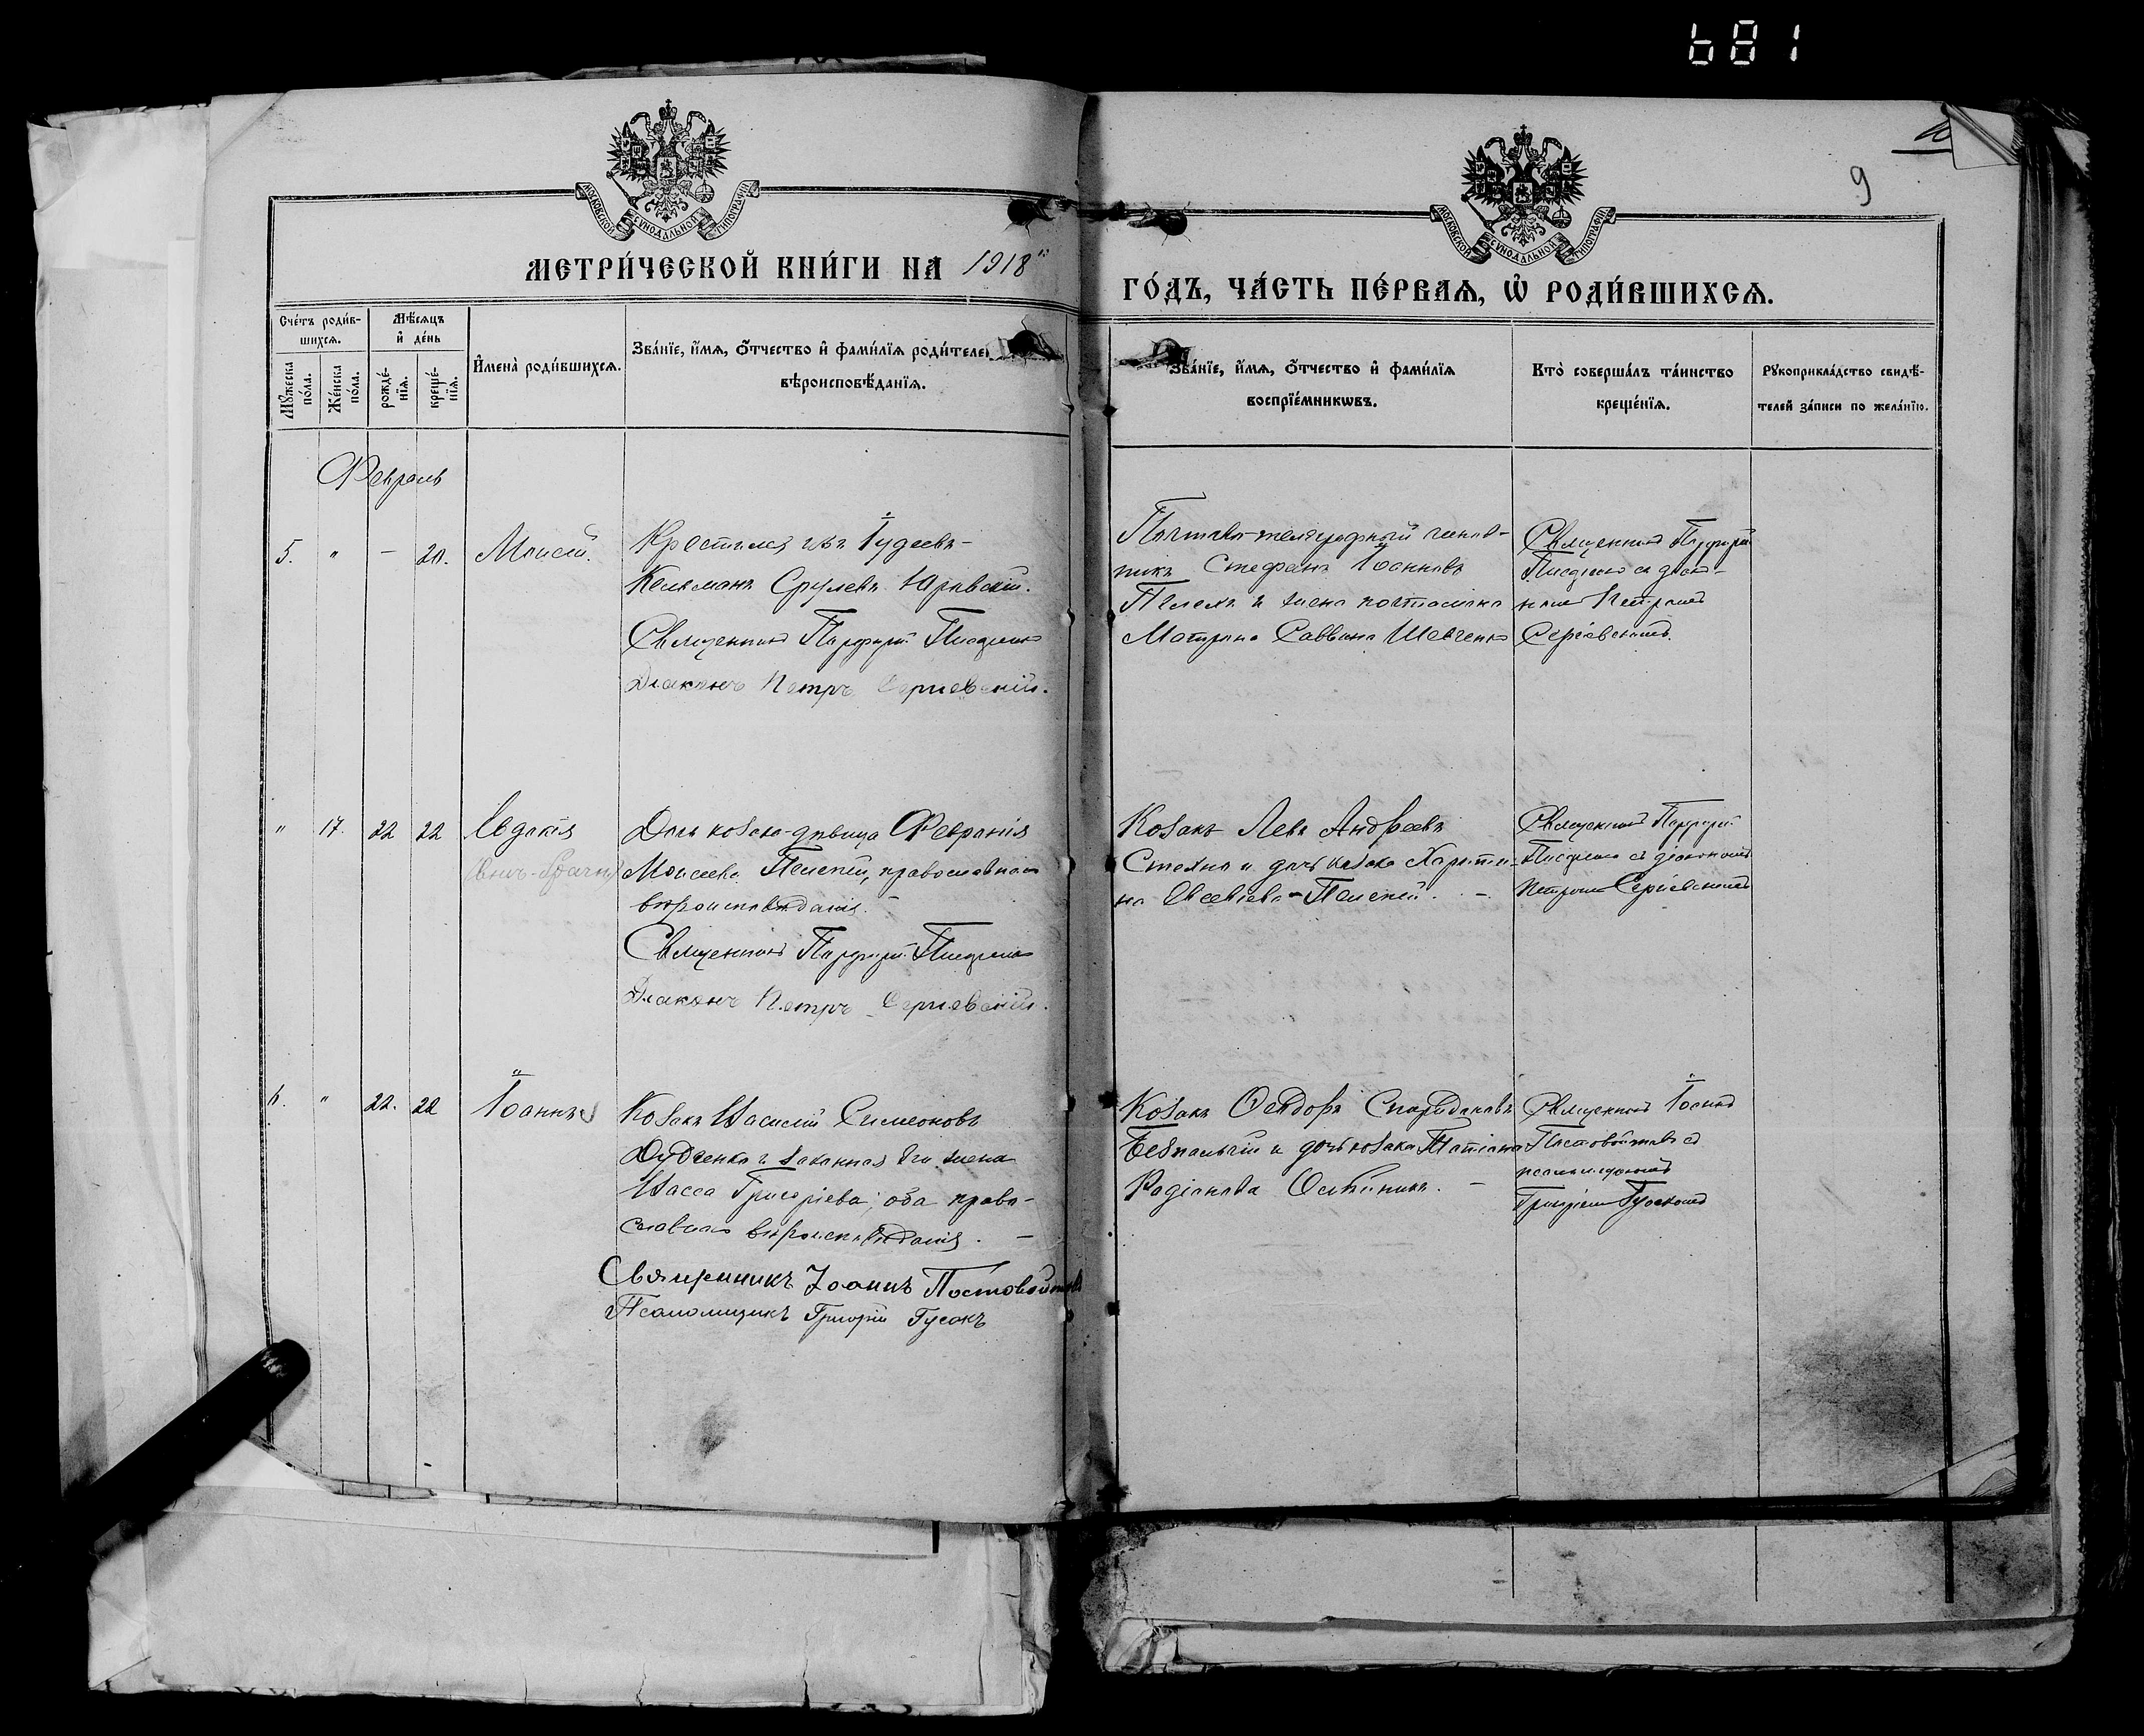 681
10
9
МОСКОВСКОЙ СѴНОДАЛЬНОЙ ТИПОГРАФІИ
МОСКОВСКОЙ СѴНОДАЛЬНОЙ ТИПОГРАФІИ
МЕТРИ́ЧЕСКОЙ КНИ́ГИ НА 1918
ГО́ДЪ, ЧА́СТЬ ПЕ́РВАѦ, Ѡ҆ РОДИ́ВШИХСѦ.
Сче́тъ роди́в-
шихсѧ.
Мꙋ́жеска по́ла.
Же́нска по́ла.
Мѣ́сѧцъ
и҆ де́нь
рожде́-
нїѧ.
креще́-
нїѧ.
И҆мена̀ роди́вшихсѧ.
Зва́нїе, и҆́мѧ, ѻ҆́тчество и҆ фами́лїѧ роди́теле
вѣроисповѣ́данїѧ.
Зва́нїе, и҆́мѧ, ѻ҆́тчество и҆ фами́лїѧ
воспрїе́мникѡвъ.
Кто̀ соверша́лъ та́инство
креще́нїѧ.
Рꙋкоприкла́дство свидѣ́-
телей за́писи по жела́нїю.
Февраль
5. " – 20. Моисей.
Крестился изъ Іудеевъ-
Кельманъ Срулевъ Юровский.
Священникъ Порфирій
Діаконъ Петръ Сергіевскій.
Почтово-телеграфный чинов-
никъ Стефанъ Іоанновъ
и жена почталіона
Матрона Саввина Шевченко
Священникъ Порфирій
съ діако-
номъ Петромъ
Сергіевскимъ.
" 17. 22 22 Евдокія
(внѣ-брачн)
Дочь козака-дѣвица Февронія
Моисеева Пелепей, православнаго
вѣроисповѣданія. –
Священникъ Порфирій
Діаконъ Петръ Сергіевскій.
Козакъ Левъ Андреевъ
Стехно и дочь козака Харити-
на Евсевіева Пелепей. –
Священникъ Порфирій
съ діакономъ
Петромъ Сергіевскимъ
6. " 22. 22 Іоаннъ
Козакъ Василій Симеоновъ
Дудченко и законная его жена
Васса Григоріева; оба право-
славнаго вѣроисповѣданія. –
Священникъ Іоаннъ Постовойтовъ
Псаломщикъ Григорій Гусакъ
Козакъ Ѳеодоръ Спиридоновъ
Безпалый и дочь козака Татіана
Родіонова –
Священникъ Іоаннъ
Постовойтовъ съ
псаломщикомъ
Григоріемъ Гусакомъ